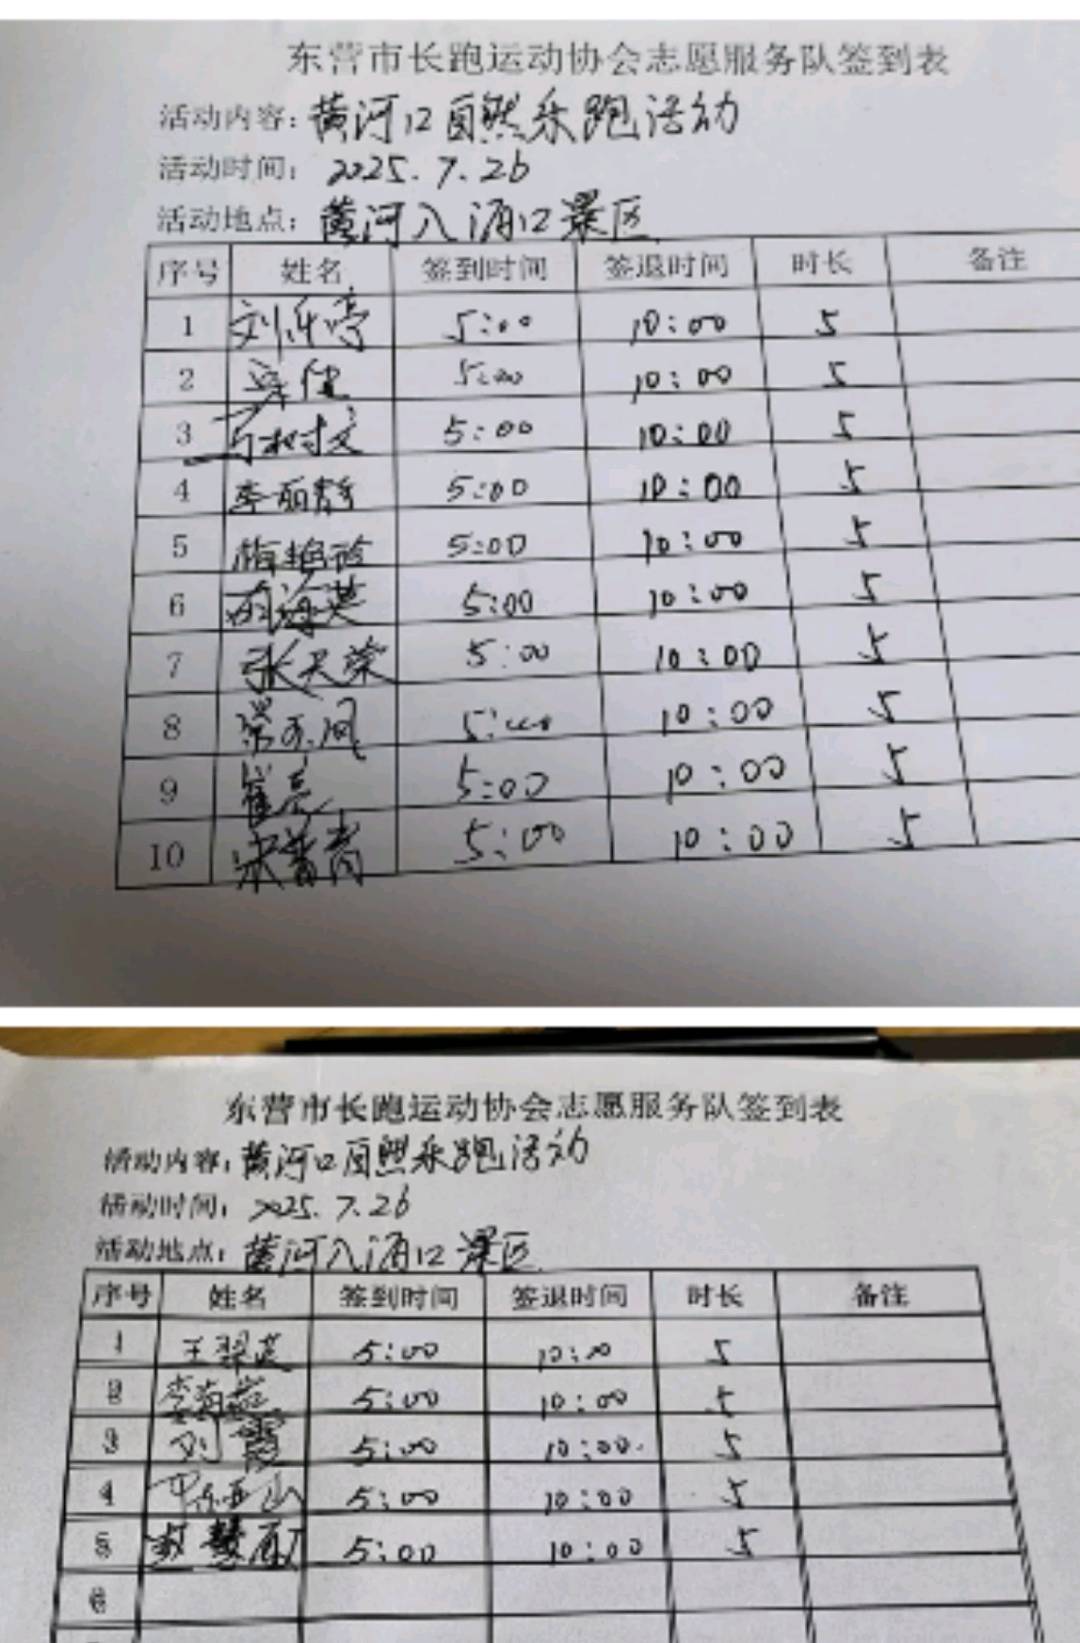 东营市长跑运动协会志愿服务队签到表
活动内容：黄河口自然乐跑活动
活动时间：2025.7.26
活动地点：黄河入海口景区
序号 姓名 签到时间 签退时间 时长 备注
1 刘 5:00 10:00 5
2 5:00 10:00 5
3 5:00 10:00 5
4 李丽静 5:00 10:00 5
5 5:00 10:00 5
6 5:00 10:00 5
7 张天荣 5:00 10:00 5
8 5:00 10:00 5
9 崔亮 5:00 10:00 5
10 5:00 10:00 5
东营市长跑运动协会志愿服务队签到表
活动内容：黄河口自然乐跑活动
活动时间：2025.7.26
活动地点：黄河入海口景区
序号 姓名 签到时间 签退时间 时长 备注
1 王翠英 5:00 10:00 5
2 李海燕 5:00 10:00 5
3 刘霞 5:00 10:00. 5
4 5:00 10:00 5
5 赵慧 5:00 10:00 5
6